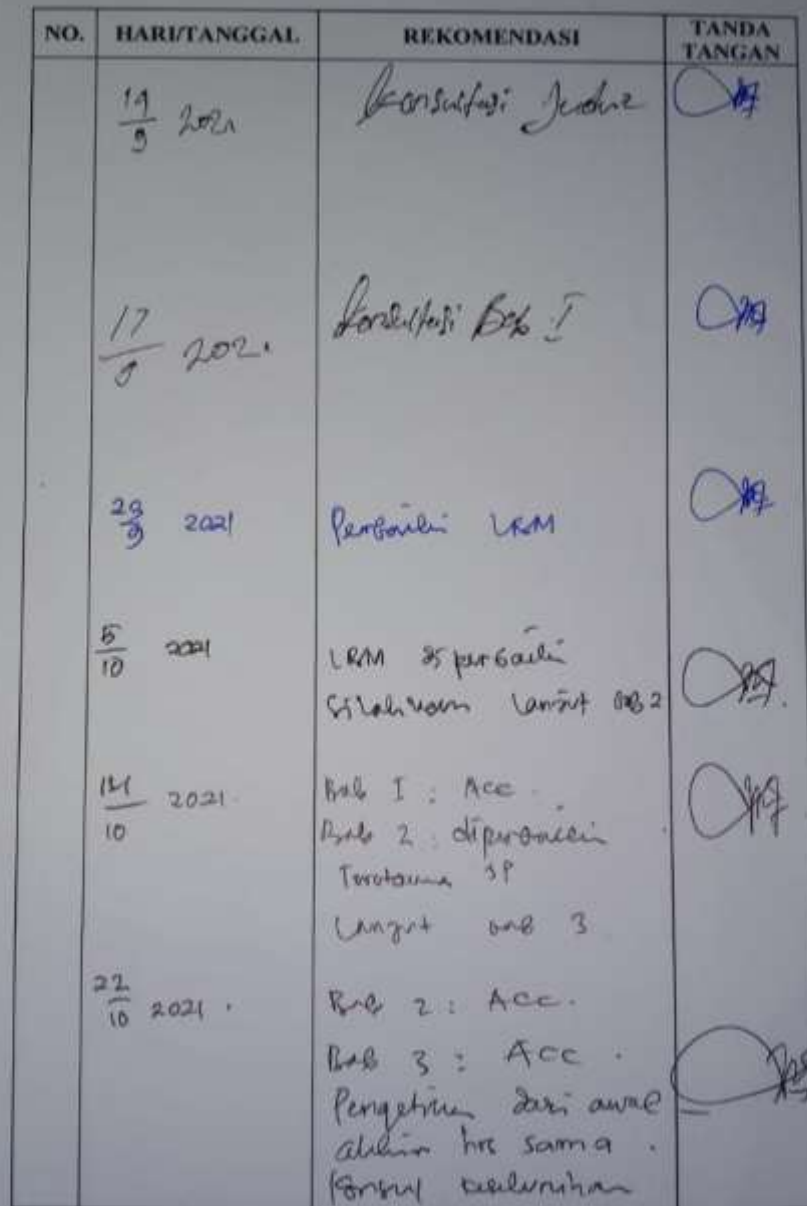 NO. HARI/TANGGAL REKOMENDASI TANDA TANGAN
14/9 2021 Konsultasi Judul
17/9 202. Konsultasi Bab I
29/9 2021 Perbaiki LRM
5/10 2021 LRM diperbaiki
Silahkan lanjut bab 2
2021. Bab I : Acc.
10 Bab 2 : diperbaiki
Terutama SP
Lanjut bab 3
22/10 2021. Bab 2 : Acc.
Bab 3 : Acc.
Pengetikan dari awal
akhir hrs sama.
Konsul keseluruhan